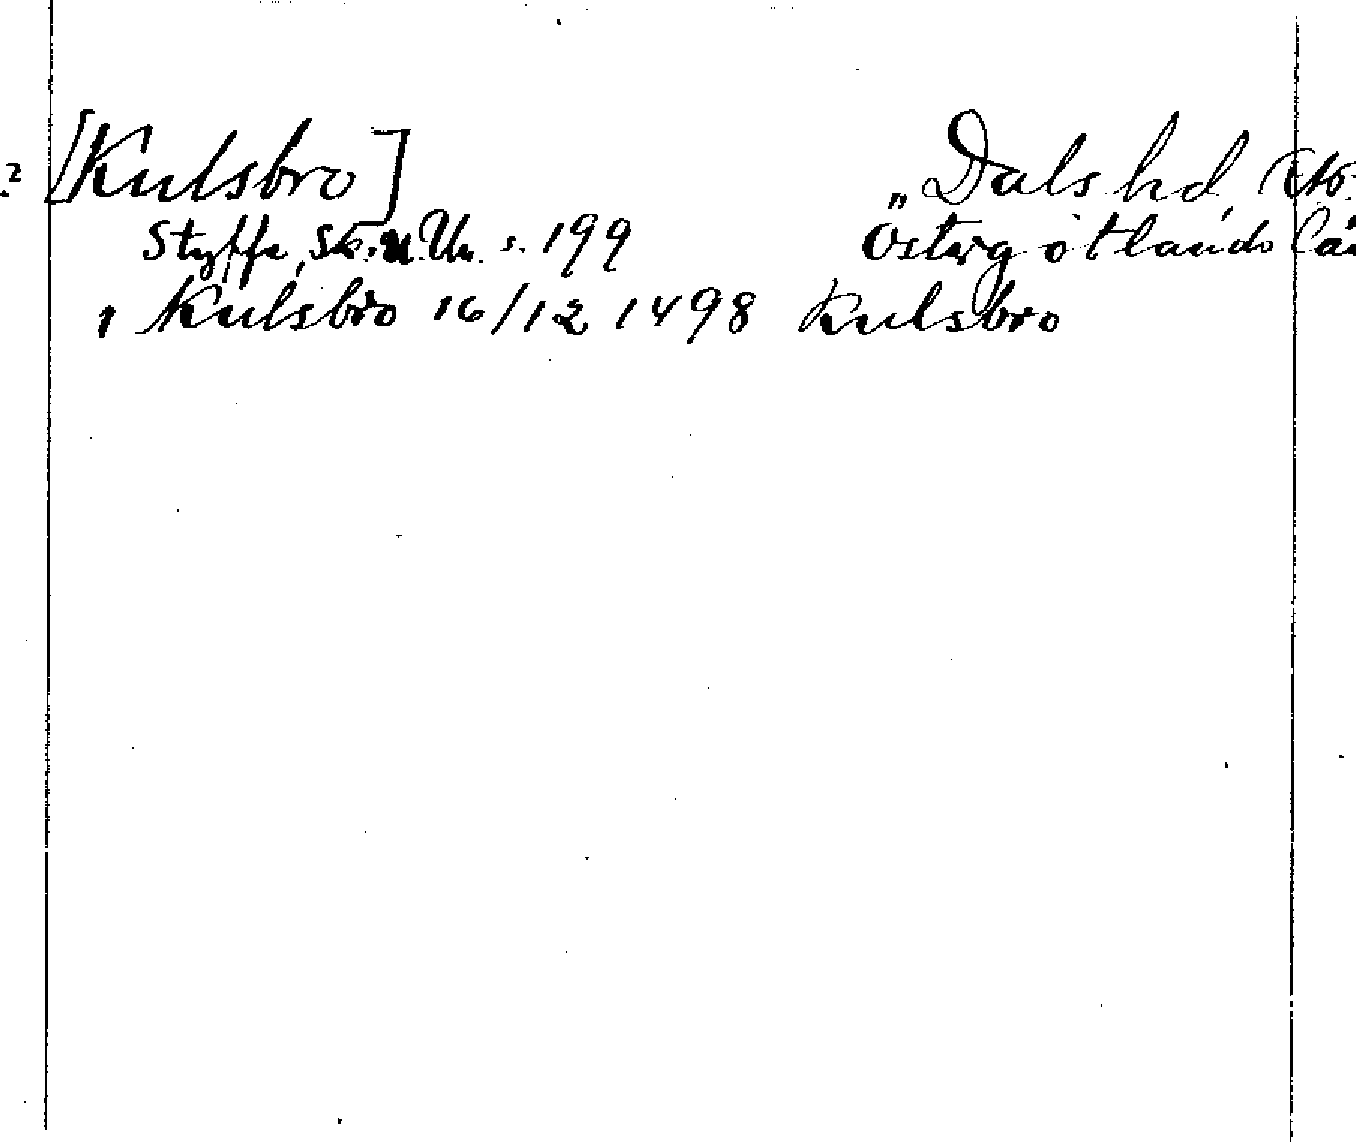 ? [Kulsbro] „ Dals hd,
Styffe, Sk. u. Un. s. 199 Östergötlands lä
1 Kulsbro 16/12 1498 Kulsbro